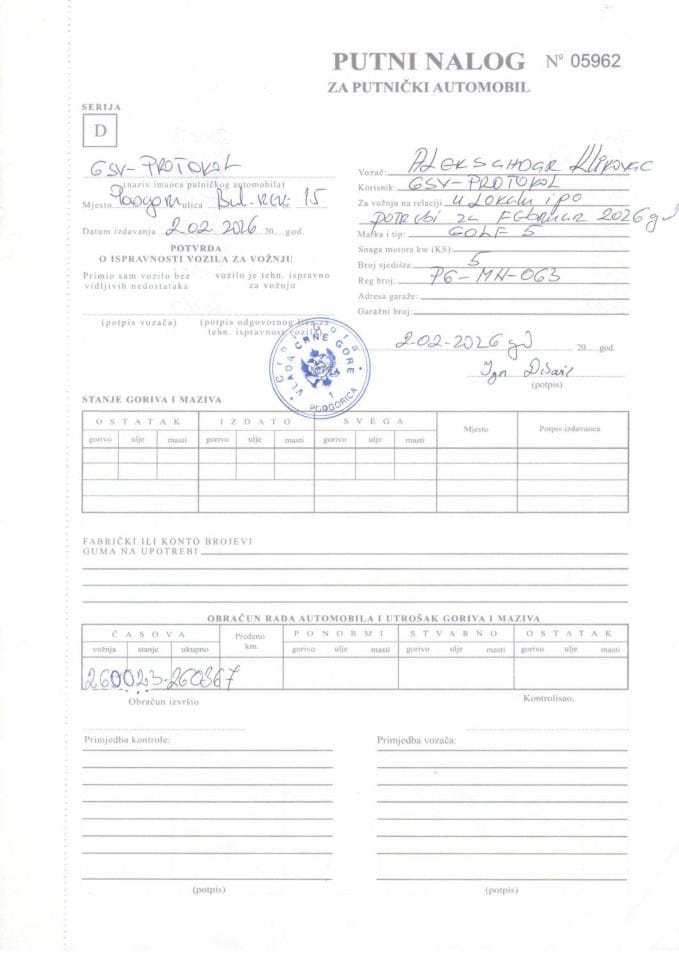 PUTNI NALOG Nº 05962
ZA PUTNIČKI AUTOMOBIL
SERIJA
D
GSV-PROTOKOL
(naziv imaoca putničkog automobila)
Mjesto Podgorica ulica Bul. Rev. br. 15
Datum izdavanja 2.02.2026 20....god.
POTVRDA
O ISPRAVNOSTI VOZILA ZA VOŽNJU
Primio sam vozilo bez vidljivih nedostataka
vozilo je tehn. ispravno za vožnju
(potpis vozača)
(potpis odgovornog lica za tehn. ispravnost vozila)
Vozač: ALEKSANDAR KLIKOVAC
Korisnik: GSV-PROTOKOL
Za vožnju na relaciji U LOKALU I PO
POTREBI ZA FEBRUAR 2026 gd
Marka i tip: GOLF 5
Snaga motora kw (KS):
Broj sjedišta: 5
Reg broj: PG-MN-063
Adresa garaže:
Garažni broj:
2-02-2026 gd 20.....god.
Igor
(potpis)
Crna Gora
VLADA CRNE GORE
1
PODGORICA
STANJE GORIVA I MAZIVA
OSTATAK IZDATO SVEGA Mjesto Potpis izdavaoca
gorivo ulje masti gorivo ulje masti gorivo ulje masti
FABRIČKI ILI KONTO BROJEVI
GUMA NA UPOTREBI
OBRAČUN RADA AUTOMOBILA I UTROŠAK GORIVA I MAZIVA
ČASOVA Pređeno km. PO NORMI STVARNO OSTATAK
vožnja stanje ukupno gorivo ulje masti gorivo ulje masti gorivo ulje masti
260023-260367
Obračun izvršio
Kontrolisao,
Primjedba kontrole:
Primjedba vozača:
(potpis)
(potpis)